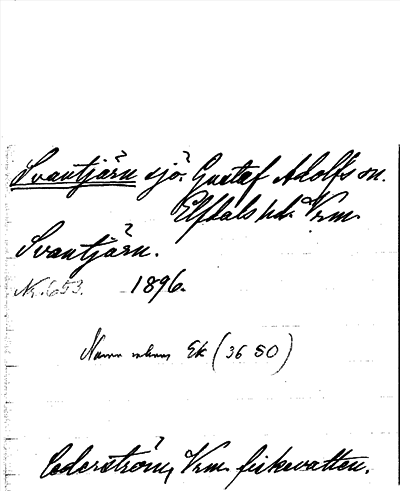 Svantjärn sjö. Gustaf Adolfs sn.
Elfdals hd. Vrm.
Svantjärn.
Nr. 653. 1896.
Namn Ek (36 SO)
Cederström, Vrm. fiskevatten.